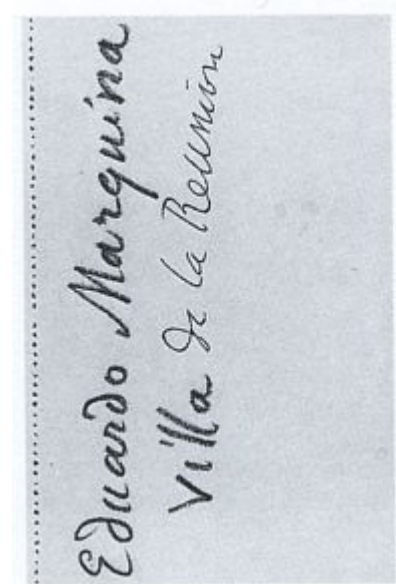 Eduardo Marquina
Villa de la Reunión